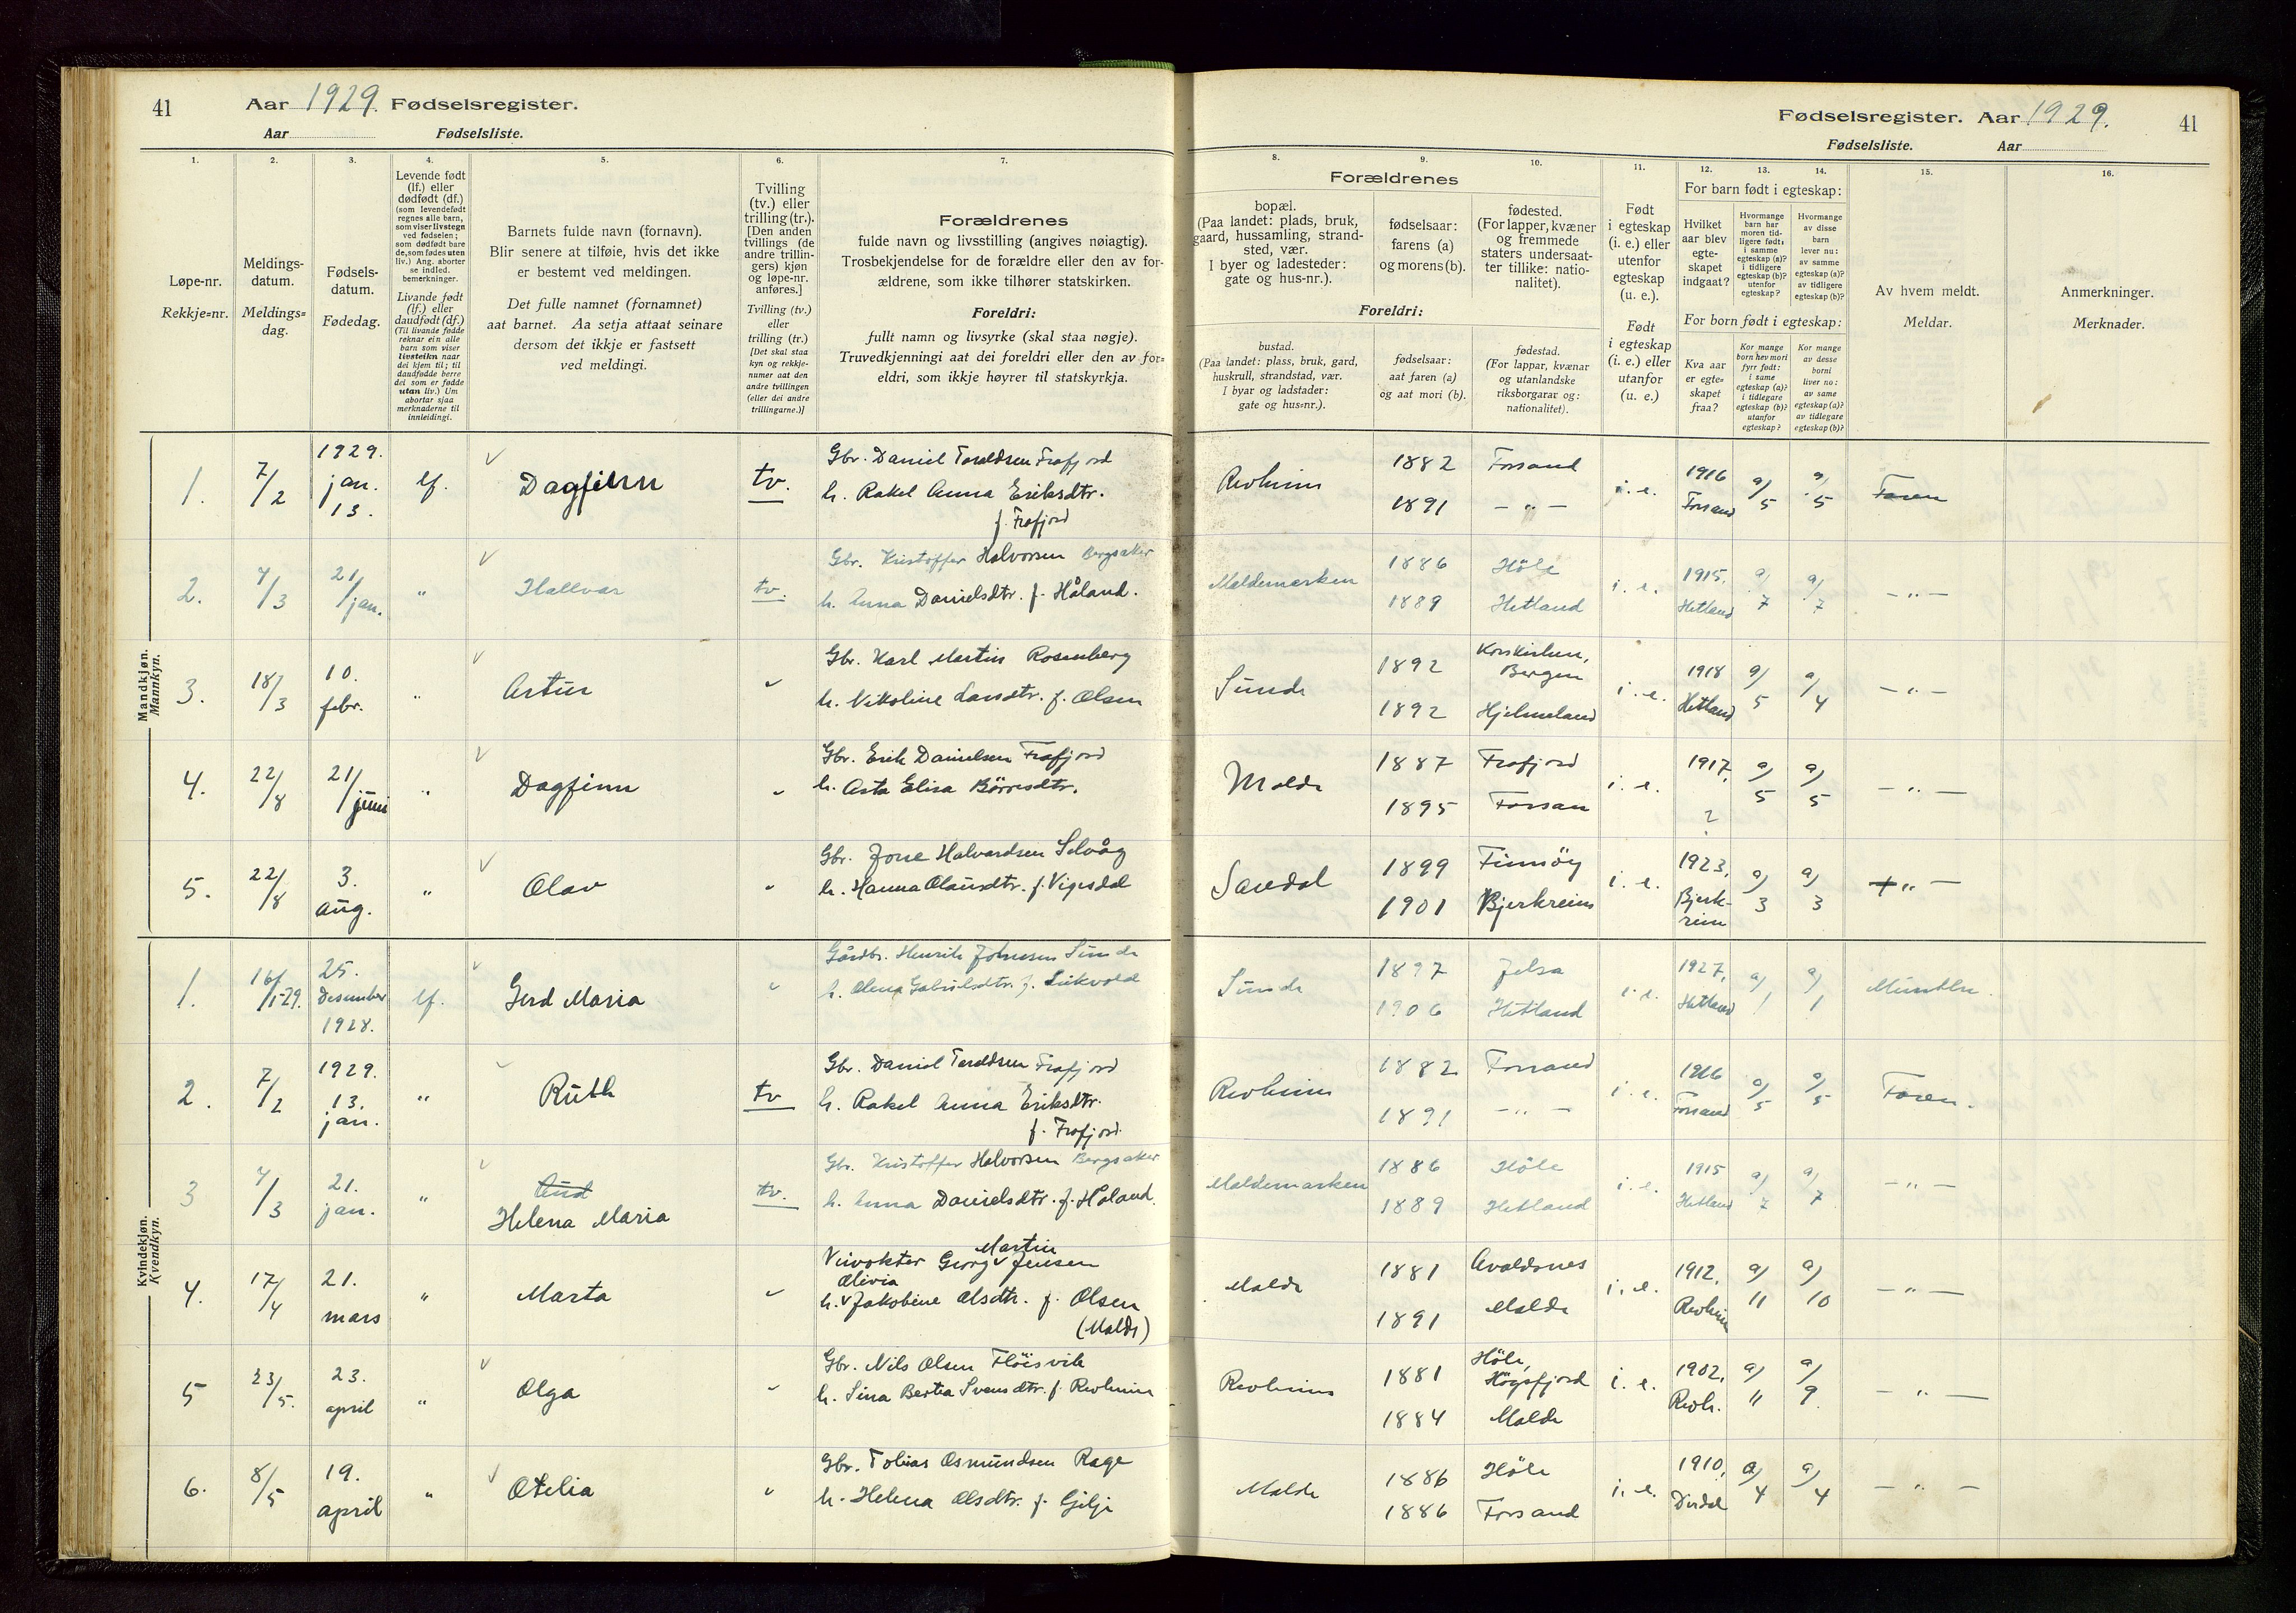 41 Aar 1929. Fødselsregister.
Aar Fødselsliste.
Fødselsregister. Aar 1929. 41
Fødselsliste. Aar
1. 2. 3. 4. 5. 6. 7. 8. 9. 10. 11. 12. 13. 14. 15. 16.
Løpe-nr.
Rekkje=nr.
Meldings-
datum.
Meldings=
dag.
Fødsels-
datum.
Fødedag.
Levende født
(lf.) eller
dødfødt (df.)
(som levendefødt
regnes alle barn,
som viser livstegn
ved fødselen;
som dødfødt bare
de, som fødes uten
liv.) Ang. aborter
se indled.
bemerkninger.
Livande født
(lf.) eller
daudfødt (df.)
(Til livande fødde
reknar ein alle
barn som viser
livsteikn naar
dei kjem til; til
daudfødde berre
dei som er fødde
utan liv.) Um
abortar sjaa
merknaderne til
innleidingi.
Barnets fulde navn (fornavn).
Blir senere at tilføie, hvis det ikke
er bestemt ved meldingen.
Det fulle namnet (fornamnet)
aat barnet. Aa setja attaat seinare
dersom det ikkje er fastsett
ved meldingi.
Tvilling
(tv.) eller
trilling (tr.).
[Den anden
tvillings (de
andre trillin-
gers) kjøn
og løpe-nr.
anføres.]
Tvilling (tv.)
eller
trilling (tr.)
[Det skal staa
kyn og rekkje-
numer aat den
andre tvillingen
(eller dei andre
trillingarne.)]
Forældrenes
fulde navn og livsstilling (angives nøiagtig).
Trosbekjendelse for de forældre eller den av for-
ældrene, som ikke tilhører statskirken.
Foreldri:
fullt namn og livsyrke (skal staa nøgje).
Truvedkjenningi aat dei foreldri eller den av for=
eldri, som ikkje høyrer til statskyrkja.
Forældrenes
bopæl.
(Paa landet: plads, bruk,
gaard, hussamling, strand-
sted, vær.
I byer og ladesteder:
gate og hus-nr.).
fødselsaar:
farens (a)
og morens (b).
fødested.
(For lapper, kvæner
og fremmede
staters undersaat-
ter tillike: natio-
nalitet).
Foreldri:
bustad.
(Paa landet: plass, bruk, gard,
huskrull, strandstad, vær.
I byar og ladstader:
gate og hus=nr.).
fødselsaar:
aat faren (a)
og aat mori (b).
fødestad.
(For lappar, kvænar
og utanlandske
riksborgarar og:
nationalitet).
Født
i egteskap
(i. e.) eller
utenfor
egteskap
(u. e.).
Født
i egteskap
(i. e.) eller
utanfor
(u. e.)
For barn født i egteskap:
Hvilket
aar blev
egte-
skapet
indgaat?
Hvormange
barn har
moren tid-
ligere født:
i samme
egteskap (a)?
i tidligere
egteskap (b)?
utenfor
egteskap?
Hvormange
av disse
barn
lever nu:
av samme
egteskap (a)?
av tidligere
egteskap (b)?
For born født i egteskap:
Kva aar
er egte=
skapet
fraa?
Kor mange
born hev mori
fyrr født:
i same
egteskap (a)?
i tidlegare
egteskap (b)?
utanfor
egteskap?
Kor mange
av desse
borni
liver no:
av same
egteskap (a)?
av tidlegare
egteskap (b)?
Av hvem meldt.
Meldar.
Anmerkninger.
Merknader.
Mandkjøn.
Mannkyn.
1. 7/2 1929. jan. 13. lf. Dagfinn tv. Gbr. Daniel Toraldsen Frafjord
h. Rakel Anna Eriksdtr. f. Frafjord
Revheim 1882 Forsand 1891 — " — i. e. 1916 Forsand a/5 a/5 Faren
2. 7/3 21/jan. " Hallvar tv. Gbr. Kristoffer Halvorsen Bergsaker
h. Anna Danielsdtr. f. Håland.
Maldemarken 1886 Høle 1889 Hetland i. e. 1915. Hetland a/7 a/7 — " —
3. 18/3 10. febr. " Artur " Gbr. Karl Martin Rosenberg
h. Nikoline Larsdtr. f. Olsen
Sunde 1892 Korskirken, Bergen 1892 Hjelmeland i. e. 1918 Hetland a/5 a/4 — " —
4. 22/8 21/juni " Dagfinn " Gbr. Erik Danielsen Frafjord
h. Asta Elisa Børresdtr.
Malde 1887 Frafjord 1895 Forsan i. e. 1917, ? a/5 a/5 — " —
5. 22/8 3. aug. " Olav " Gbr. Jone Halvardsen Selvåg
h. Hanna Olausdtr. f. Vigesdal
Sandal 1899 Finnøy 1901 Bjerkreim i. e. 1923, Bjerk-reim a/3 a/3 — " —
Kvindekjøn.
Kvendkyn.
1. 16/1-29. 25. desember 1928. lf. Gerd Maria " Gårdbr. Henrik Johnsen Sunde
h. Olena Gabrielsdtr. f.
Sunde 1897 Jelsa 1906 Hetland i. e. 1927, Hetland a/1 a/1
2. 7/2 1929. 13. jan. " Ruth tv Gbr. Daniel Toraldsen Frafjord
h. Rakel Anna Eriksdtr. f. Frafjord
Revheim 1882 Forsand 1891 — " — i. e. 1916 Forsand a/5 a/5 Faren.
3 7/3 21. jan. " Aud Helena Maria tv. Gbr. Kristoffer Halvorsen Bergsaker
h. Anna Danielsdtr. f. Håland.
Maldemarken 1886 Høle 1889 Hetland i. e. 1915 Hetland a/7 a/7 — " —
4. 17/4 21. mars " Marta " Veivokter Georg Martin Jensen
h. Olivia Jakobine Olsdtr. f. Olsen (Malde)
Malde 1881 Avaldsnes 1891 Malde i. e. 1912, Revheim a/11 a/10 — " —
5 23/5. 23. april " Olga " Gbr. Nils Olsen Fløisvik
h. Sina Bertea Svensdtr. f. Revheim
Revheim 1881 Høle, Høgsfjord 1884 Malde i. e. 1902, Revh. a/11 a/9 — " —
6. 8/5 19. april " Otelia " Gbr. Tobias Osmundsen Rage
h. Helena Olsdtr. f. Gilje
Malde 1886 Høle 1886 Forsand i. e. 1910, Dirdal a/4 a/4 — " —